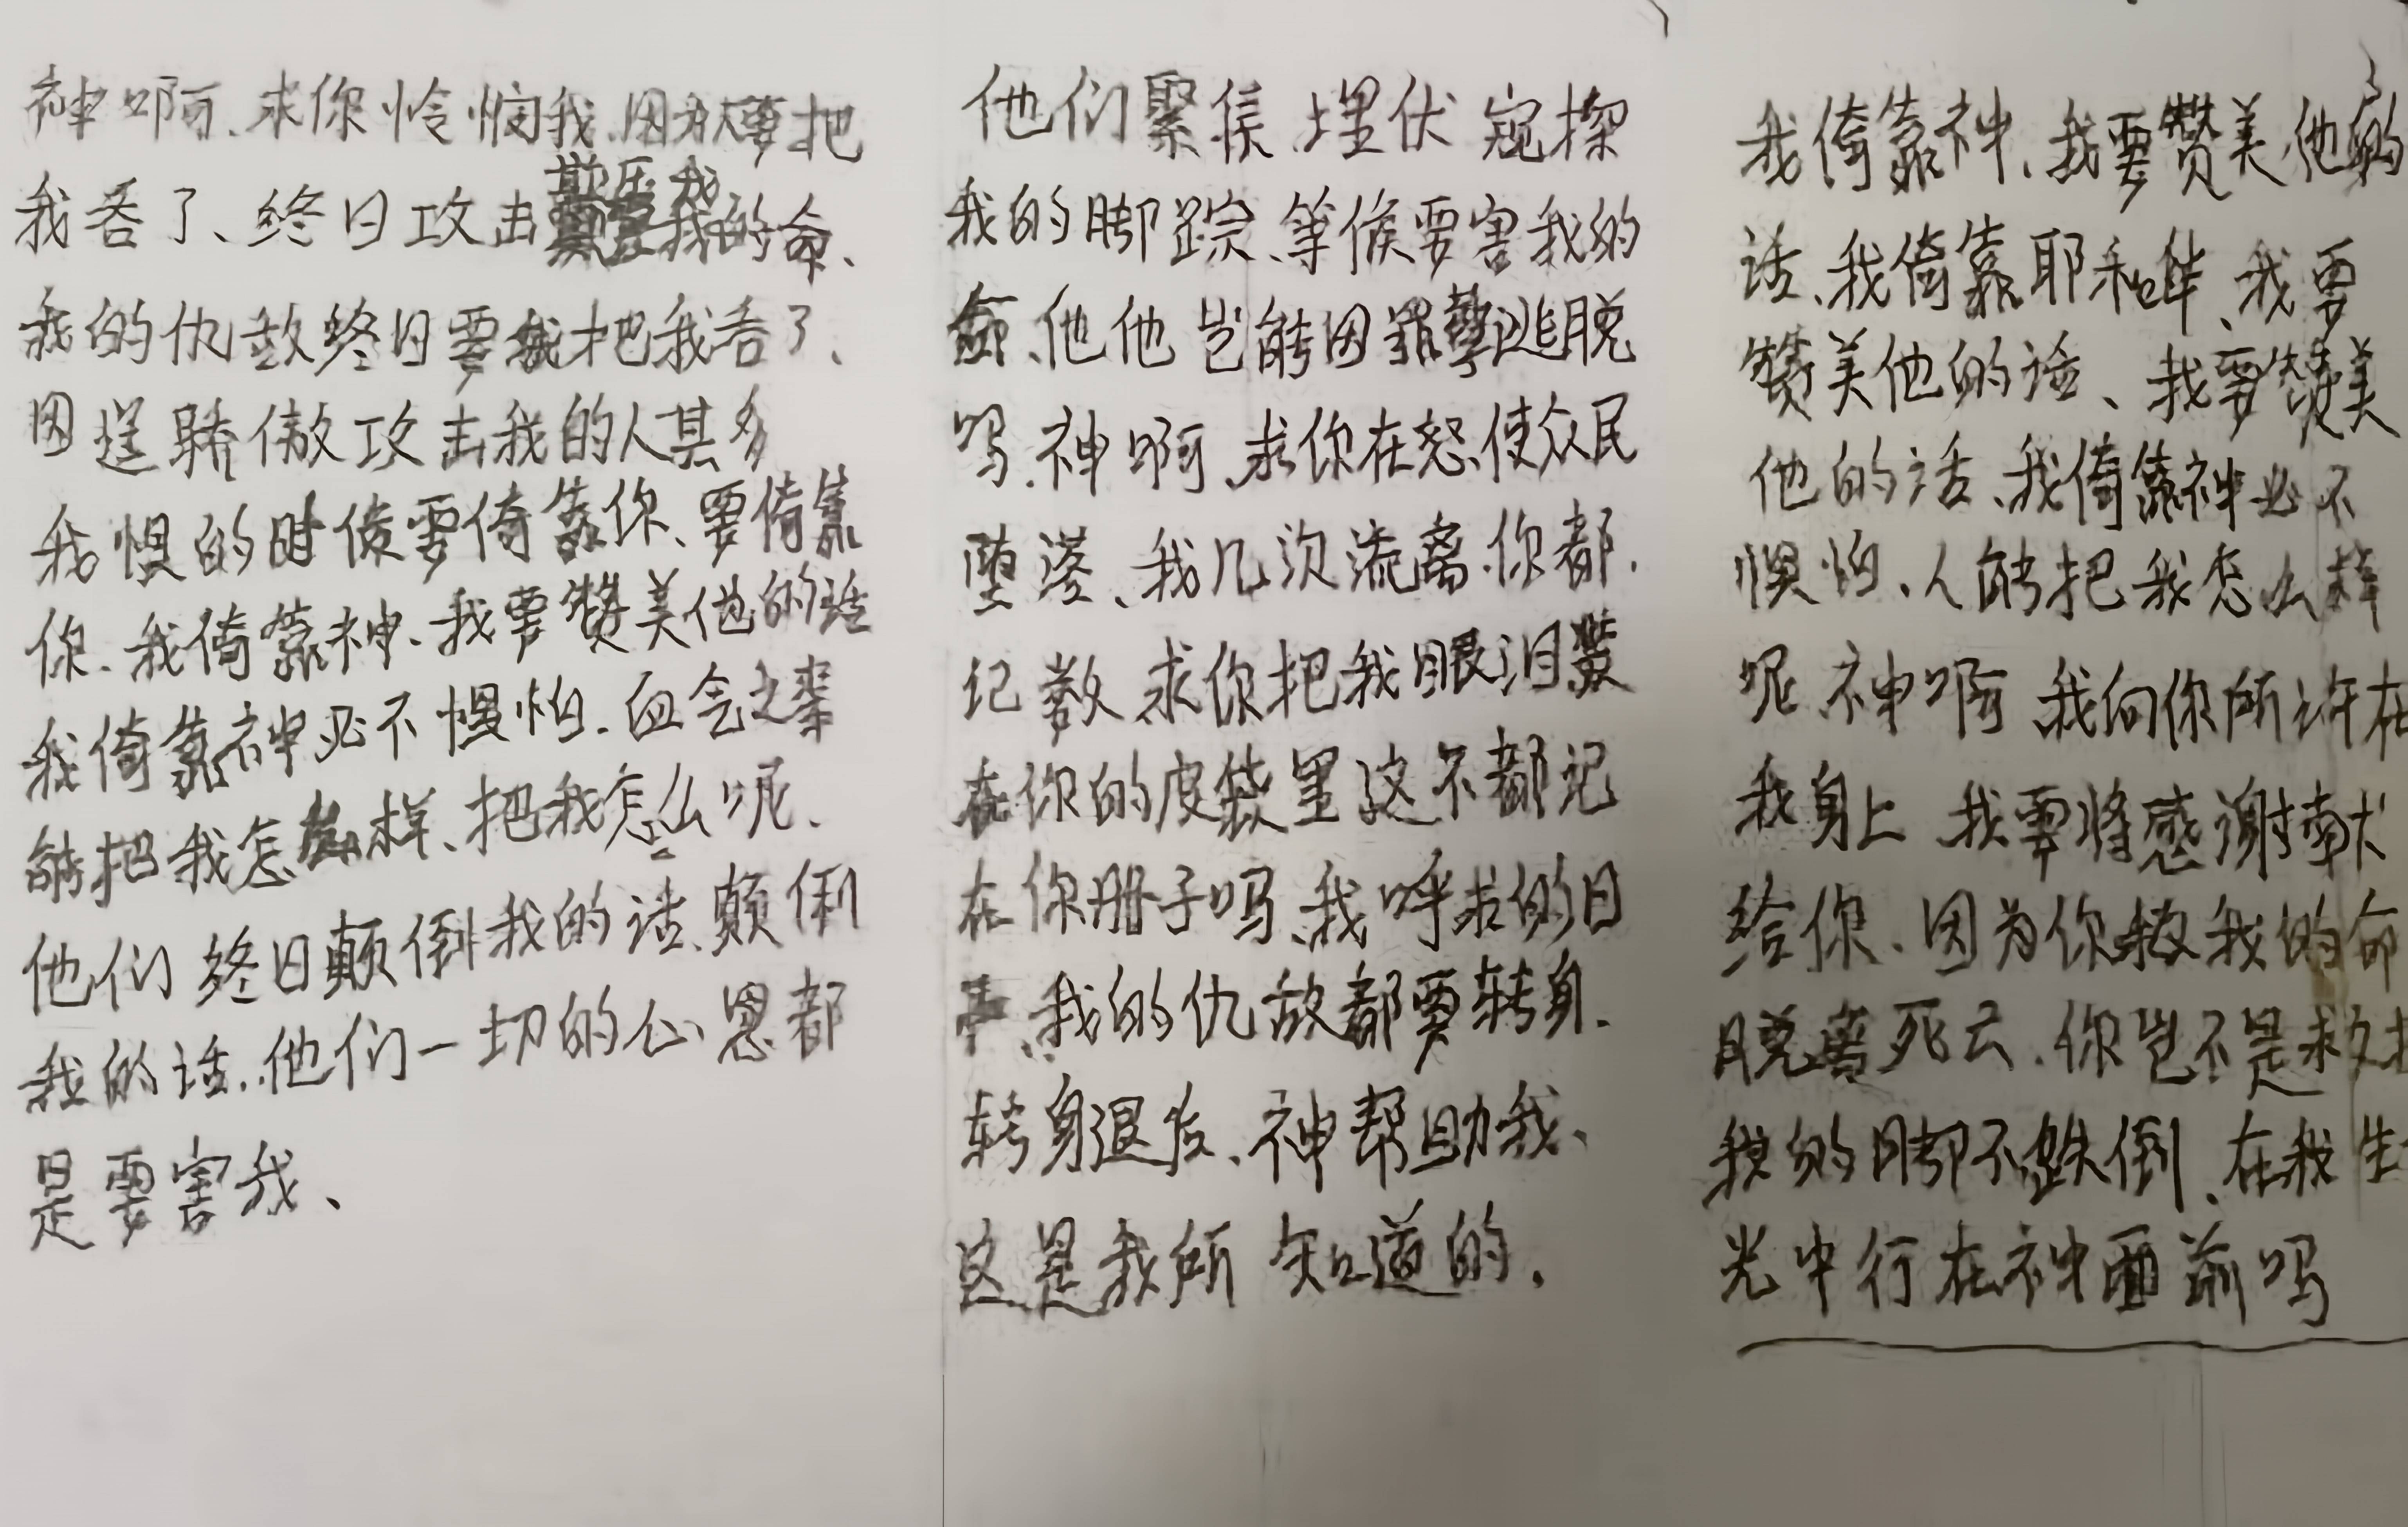 神啊、求你怜悯我、因人要把
我吞了、终日攻击欺压我的命、
我的仇敌终日要把我吞了、
因逞骄傲攻击我的人甚多
我惧的时候要倚靠你、要倚靠
你、我倚靠神、我要赞美他的话
我倚靠神必不惧怕.血气之辈
能把我怎么样、把我怎么呢、
他们终日颠倒我的话、颠倒
我的话、他们一切的心思都
是要害我、
他们聚集、埋伏窥探
我的脚踪、等候要害我的
命、他他岂能因罪孽逃脱
吗、神啊、求你在怒、使众民
堕落、我几次流离、你都、
记数、求你把我眼泪装
在你的皮袋里这不都记
在你册子吗、我呼求的日
我的仇敌都要转身、
转身退后、神帮助我、
这是我所知道的、
我倚靠神、我要赞美他的
话、我倚靠耶和华、我要
赞美他的话、我要赞美
他的话、我倚靠神必不
惧怕、人能把我怎么样
呢、神啊、我向你所许在
我身上、我要将感谢献
给你、因为你救我的命
脱离死亡、你岂不是救
我的脚不跌倒、在我生
光中行在神面前吗